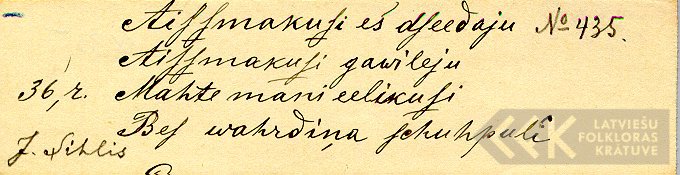 Aissmakusi es dseedaju No 435.
Aissmakusi gawileju
36, r. Mahte mani eelikusi
Bes wahrdiņa schuhpulī
J. Sihlis
LATVIEŠU
FOLKLORAS
KRĀTUVE